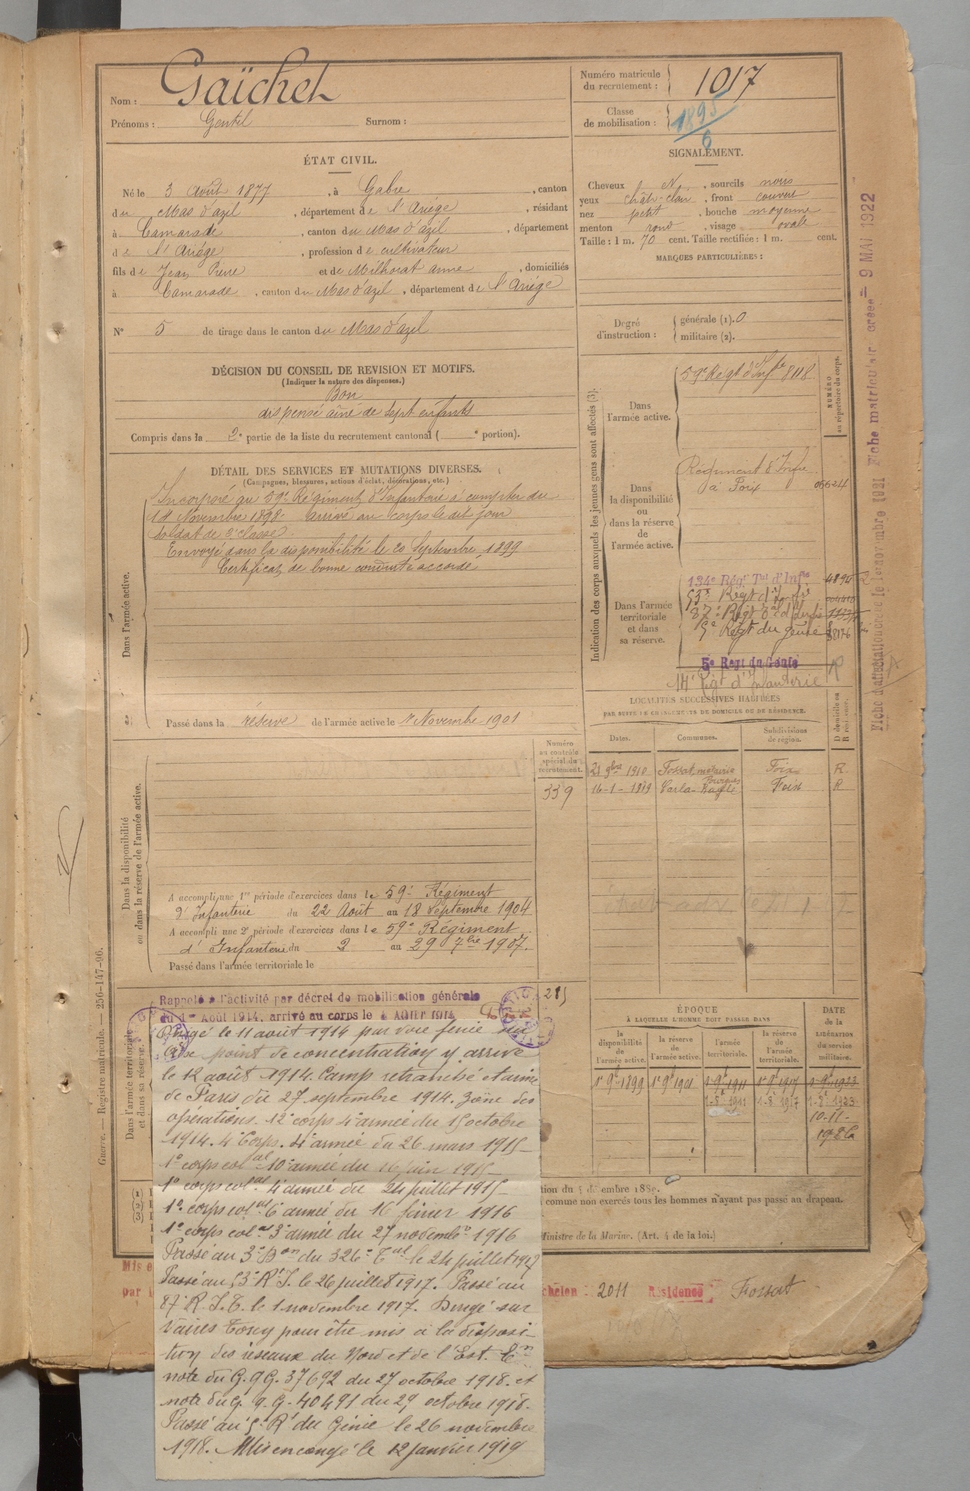 Nom : Gaïchet
Prénoms : Gentil Surnom :
Numéro matricule du recrutement : 1017
Classe de mobilisation : 1895
6
ÉTAT CIVIL.
Né le 3 Août 1877, à Gabre, canton
du Mas d'azil, département de l'Ariège, résidant
à Camarade, canton du Mas d'azil, département
de l'Ariége, profession de cultivateur
fils de Jean Pierre et de Milhorat anne, domiciliés
à Camarade, canton du Mas d'azil, département de l'Ariége
N° 5 de tirage dans le canton du Mas d'azil
SIGNALEMENT.
Cheveux N., sourcils noirs
yeux chât-clair, front couvert
nez petit, bouche moyenne
menton rond, visage ovale
Taille : 1 m. 70 cent. Taille rectifiée : 1 m. cent.
MARQUES PARTICULIÈRES :
Degré d'instruction : générale (1). 0
militaire (2).
DÉCISION DU CONSEIL DE REVISION ET MOTIFS.
(Indiquer la nature des dispenses.)
Bon
dispensé aîné de sept enfants
Compris dans la 2e partie de la liste du recrutement cantonal ( e portion).
DÉTAIL DES SERVICES ET MUTATIONS DIVERSES.
(Campagnes, blessures, actions d'éclat, décorations, etc.)
Dans l'armée active.
Incorporé au 59e Régiment d'Infanterie à compter du
14 Novembre 1898. Arrivé au corps le dit jour
soldat de 2e classe.
Envoyé dans la disponibilité le 20 Septembre 1899
Certificat de bonne conduite accordé
Passé dans la réserve de l'armée active le 1er Novembre 1901
Indication des corps auxquels les jeunes gens sont affectés (3).
NUMÉRO au répertoire du corps.
Dans l'armée active.
59e Regt d'Infie 8118
Dans la disponibilité ou dans la réserve de l'armée active.
Régiment d'Infie
à Foix 06624
Dans l'armée territoriale et dans sa réserve.
134e Régt Tal d'Infie
53e Regt d'Infie
87e Régt Tal d'Infie
5e Regt du génie
5e Regt du Génie
14e Rgt d'Infanterie
LOCALITÉS SUCCESSIVES HABITÉES
PAR SUITE DE CHANGEMENTS DE DOMICILE OU DE RÉSIDENCE.
Dates. Communes. Subdivisions de région.
21 9bre 1910 Fossat Foix R
16-1-1919 Carla-Bayle Foix R
Fiche d'affectation du 1er novembre 1921 Fiche matriculaire créée 9 MAI 1922
Dans la disponibilité ou dans la réserve de l'armée active.
Numéro au contrôle spécial du recrutement.
339
A accompli une 1re période d'exercices dans le 59e Régiment
d'Infanterie du 22 Août au 18 Septembre 1904
A accompli une 2e période d'exercices dans le 59e Régiment
d'Infanterie du 2 au 29 7bre 1907.
Passé dans l'armée territoriale le
Guerre. — Registre matricule. — 256-147-96.
Dans l'armée territoriale et dans sa réserve.
Rappelé à l'activité par décret de mobilisation générale
du 1er Août 1914, arrivé au corps le 4 AOUT 1914
Dirigé le 11 août 1914 par voie ferrée sur
une point de concentration y arrive
le 12 août 1914. Camp retranché et armée
de Paris du 27 septembre 1914. Zône des
opérations. 12e corps 4e armée du 15 octobre
1914. 4e Corps. 4e armée du 26 mars 1915
1e corps colal 10e armée du 16 juin 1915
1e corps colal 4e armée du 24 juillet 1915
1e corps colal 6e armée du 16 février 1916
1e corps colal 3e armée du 27 novembre 1916
Passé au 3e Bon du 326e Tal le 24 juillet 1917
Passé au 53e R.I. le 26 juillet 1917. Passé au
87e R.I.T. le 1 novembre 1917. Dirigé sur
Vaires Torcy pour être mis à la disposi-
tion des réseaux du Nord et de l'Est. En
note du G.Q.G. 37692 du 27 octobre 1918. et
note du G.Q.G. 40491 du 29 octobre 1918.
Passé au 5e R. du Génie le 26 novembre
1918. Mis en congé le 12 janvier 1919
ÉPOQUE
À LAQUELLE L'HOMME DOIT PASSER DANS
la disponibilité de l'armée active. la réserve de l'armée active. l'armée territoriale. la réserve de l'armée territoriale. DATE de la LIBÉRATION du service militaire.
1er 9bre 1899 1er 9bre 1901 1er 9bre 1911 1er 9bre 1917 1er 9bre 1923
10-11-
1926
tion du 5 décembre 1889.
comme non exercés tous les hommes n'ayant pas passé au drapeau.
Ministre de la Marine. (Art. 4 de la loi.)
Mis e
par l
chelon : 2011 Résidence Fossat